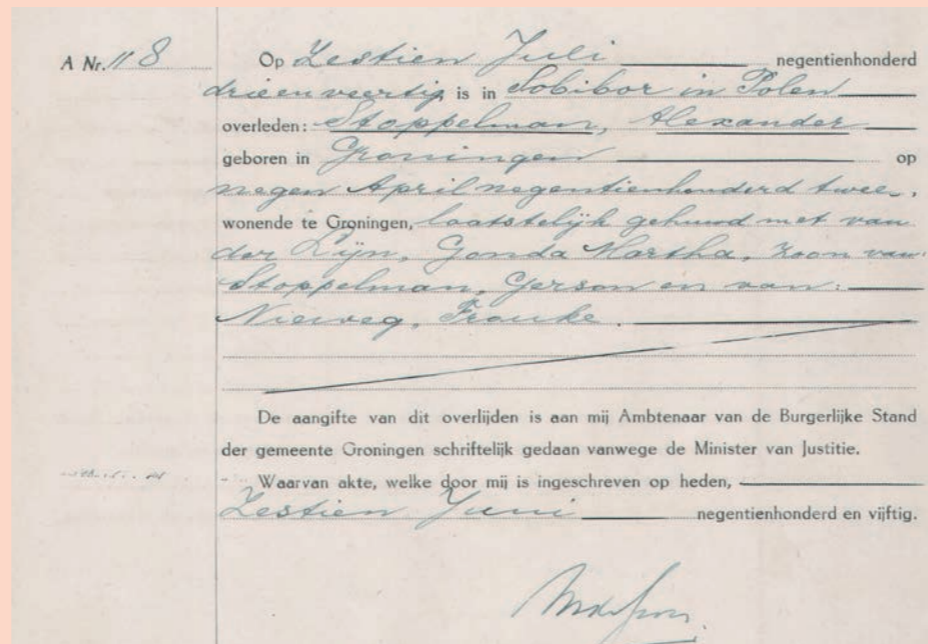 A Nr. 118
Op Zestien Juli negentienhonderd
drieenveertig, is in Sobibor in Polen
overleden: Stoppelman, Alexander
geboren in Groningen op
negen April negentienhonderd twee,
wonende te Groningen, laatstelijk gehuwd met van
der Lijn, Gonda Martha, zoon van:
Stoppelman, Gerson en van:
Nieweg, Frouke.
De aangifte van dit overlijden is aan mij Ambtenaar van de Burgerlijke Stand
der gemeente Groningen schriftelijk gedaan vanwege de Minister van Justitie.
Waarvan akte, welke door mij is ingeschreven op heden,
Zestien Juni negentienhonderd en vijftig.